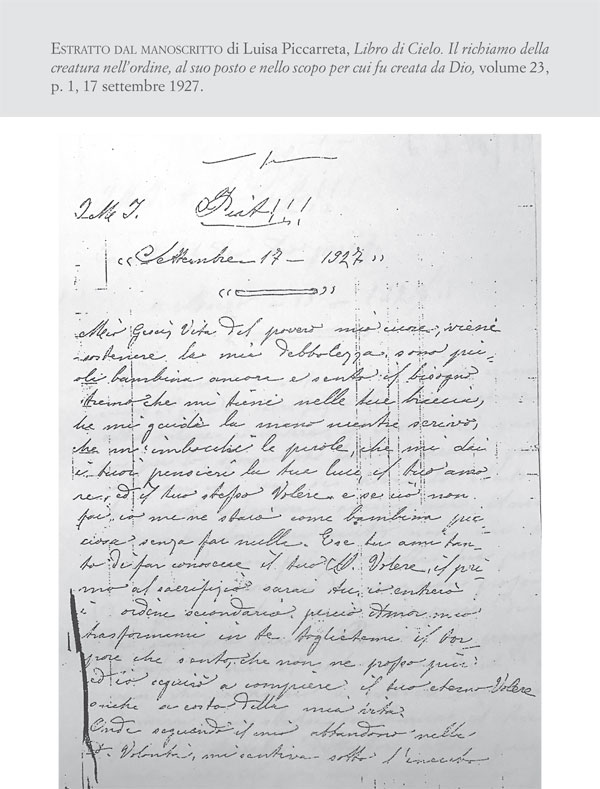 ESTRATTO DAL MANOSCRITTO di Luisa Piccarreta, Libro di Cielo. Il richiamo della
creatura nell'ordine, al suo posto e nello scopo per cui fu creata da Dio, volume 23,
p. 1, 17 settembre 1927.
J. M. J. Fiat!!!
«Settembre 17 – 1927»
Mio Gesù, Vita del povero mio cuore, viene
sostenere la mia debbolezza, sono pic-
oli bambina ancora e sento il bisogno
stremo che mi tieni nelle tue braccia,
he mi guidi la mano mentre scrivo,
che m'imbocchi le parole, che mi dai
i tuoi pensieri la tua luce, il tuo amo-
re, ed il tuo stesso Volere, e se ciò non
fai, io me ne starò come bambina pic-
ciosa senza far nulla. E se tu ami tan-
to di far conoscere il tuo Volere, il pri-
mo al sacrifizio sarai tu, io entrerò
i ordine secondario. perciò Amor mio
trasformami in te toglietemi il tor-
pore che sento, che non ne posso più
ed io seguirò a compiere il tuo eterno Volere
anche a costo della mia vita.
Onde seguendo il mio abbandono nella
D. Volontà, mi sentiva sotto l'incubo